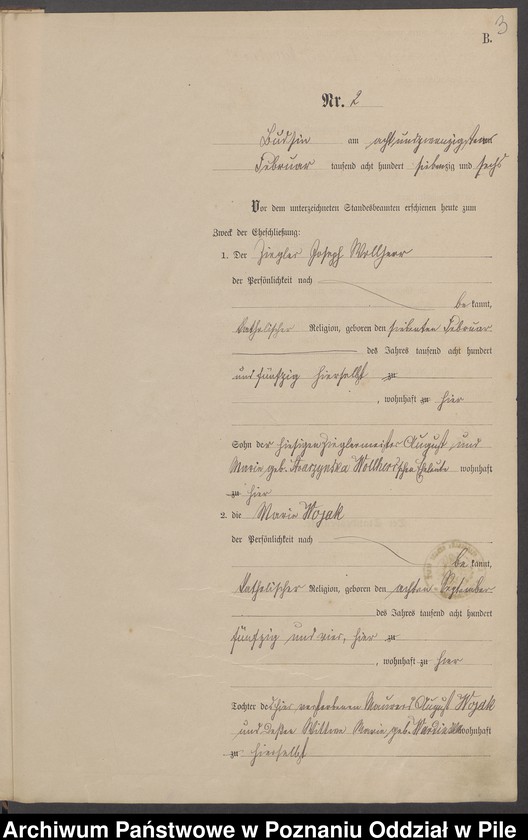 3
B.
Nr. 2
Budsin am achtundzwanzigsten
Februar tausend acht hundert siebenzig und sechs
Vor dem unterzeichneten Standesbeamten erschienen heute zum
Zweck der Eheschließung:
1. Der Ziegler Joseph Wollherr
der Persönlichkeit nach
be kannt,
katholischer Religion, geboren den siebenten Februar
des Jahres tausend acht hundert
und fünfzig hierselbst zu
, wohnhaft zu hier
Sohn der hiesigen Zieglermeister August und
Marie geb. Wollherr'schen Eheleute wohnhaft
zu hier
2. die Marie Wozak
der Persönlichkeit nach
be kannt,
katholischer Religion, geboren den achten September
des Jahres tausend acht hundert
fünfzig und vier, hier zu
, wohnhaft zu hier
Tochter des hier verstorbenen Maurers August Wozak
und dessen Wittwe Marie, geb. wohnhaft
zu hierselbst
Archiwum Państwowe w Poznaniu Oddział w Pile